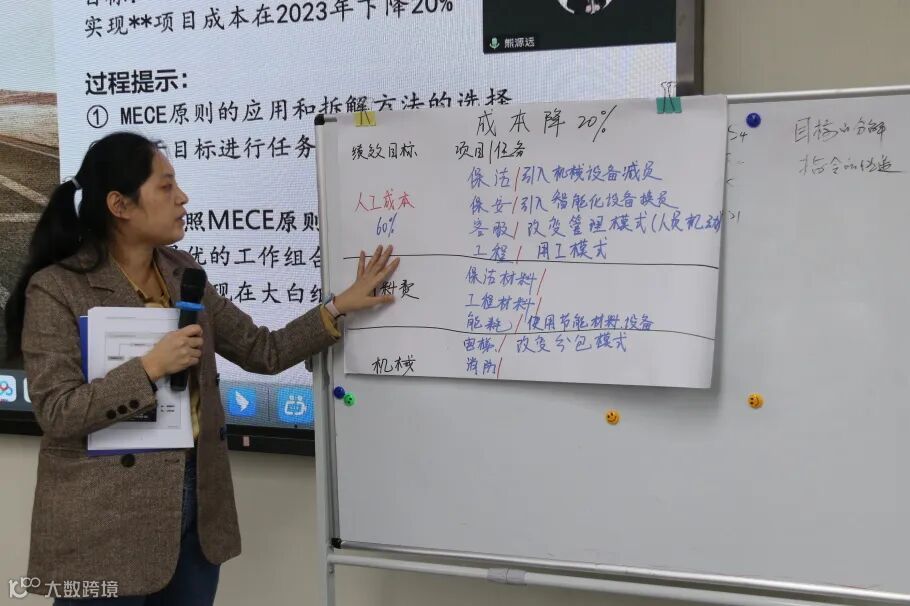 实现**项目成本在2023年下降20%
熊源远
过程提示：
① MECE原则的应用和拆解方法的选择
目标进行任务
照MECE原则
优的工作组合
现在大白纸
成本降20%
绩效目标 项目/任务
保洁/引入机械设备减员
人工成本 保安/引入智能化设备换员
60% 客服/改变管理模式(人员机动
工程/用工模式
料费 保洁材料/
工程材料/
能耗/使用节能材料设备
电梯/改变分包模式
机械 消防/
目标的分解
指令的传递
大数跨境